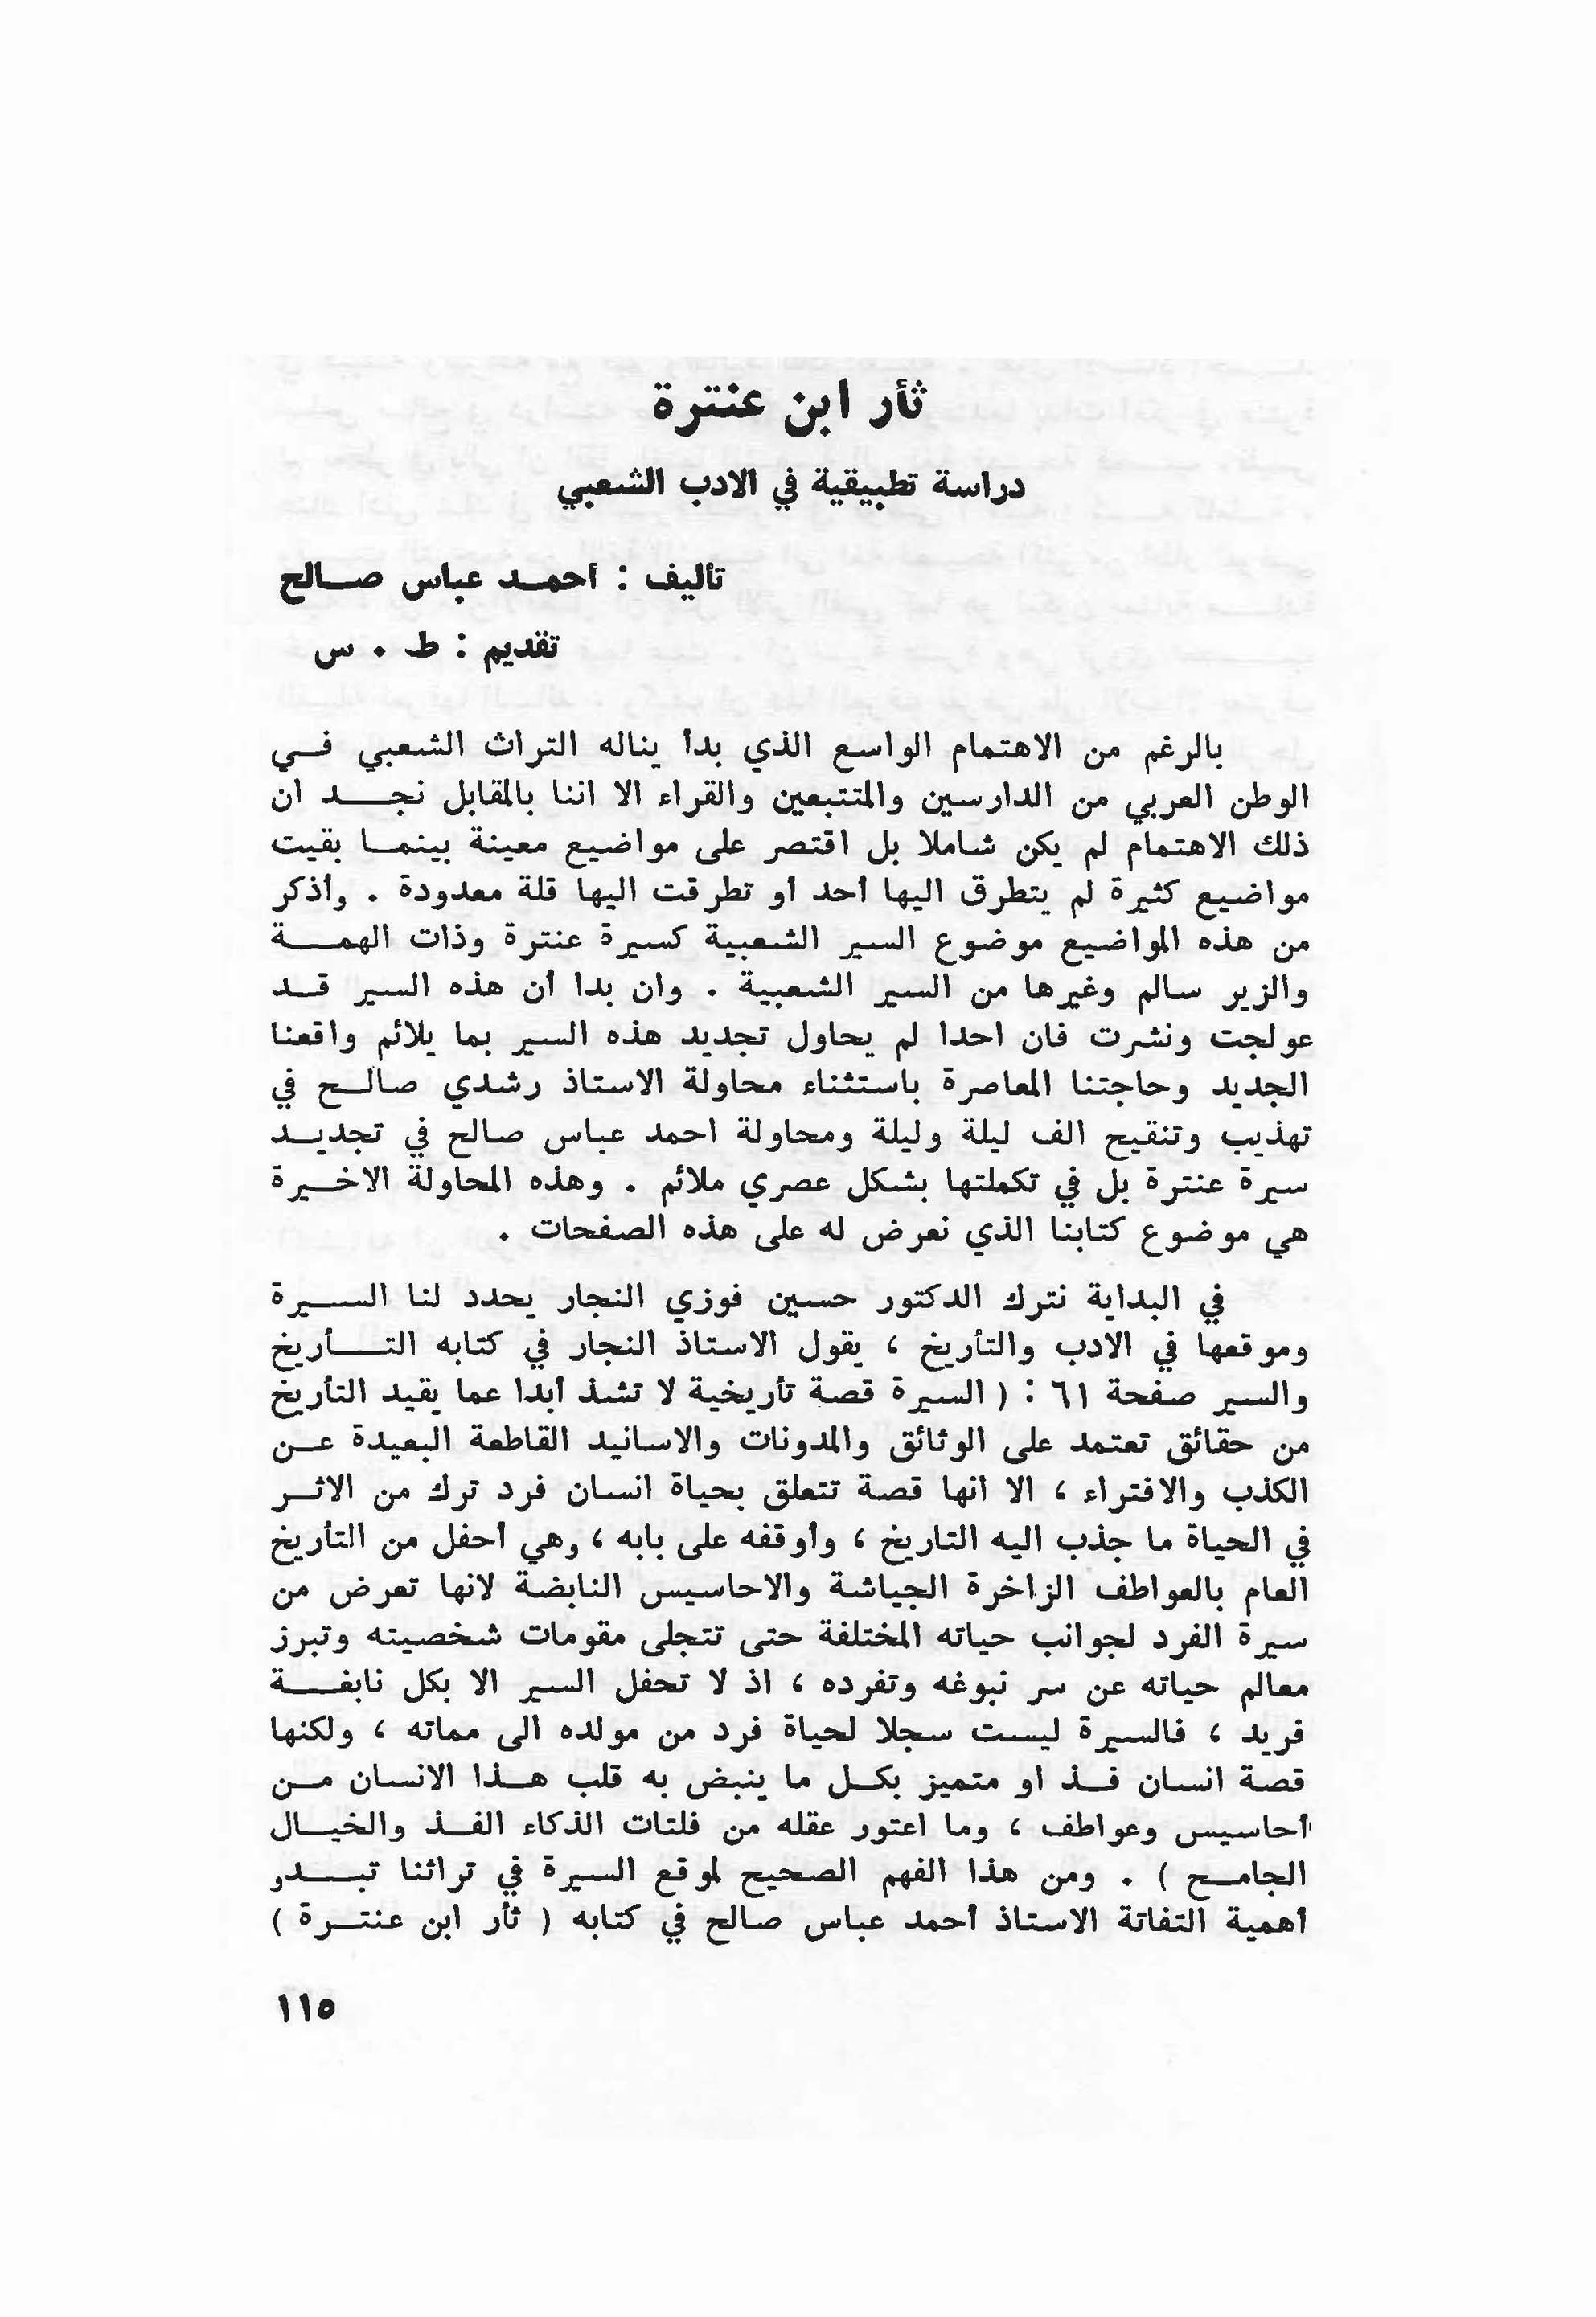 ثأر ابن عنترة
دراسة تطبيقية في الادب الشعبي
تأليف : أحمد عباس صالح
تقديم : ط . س
بالرغم من الاهتمام الواسع الذي بدأ يناله التراث الشعبي في
الوطن العربي من الدارسين والمتتبعين والقراء الا اننا بالمقابل نجد ان
ذلك الاهتمام لم يكن شاملا بل اقتصر على مواضيع معينة بينما بقيت
مواضيع كثيرة لم يتطرق اليها أحد أو تطرقت اليها قلة معدودة . وأذكر
من هذه المواضيع موضوع السير الشعبية كسيرة عنترة وذات الهمة
والزير سالم وغيرها من السير الشعبية . وان بدا أن هذه السير قد
عولجت ونشرت فان احدا لم يحاول تجديد هذه السير بما يلائم واقعنا
الجديد وحاجتنا المعاصرة باستثناء محاولة الاستاذ رشدي صالح في
تهذيب وتنقيح الف ليلة وليلة ومحاولة احمد عباس صالح في تجديد
سيرة عنترة بل في تكملتها بشكل عصري ملائم . وهذه المحاولة الاخيرة
هي موضوع كتابنا الذي نعرض له على هذه الصفحات .
في البداية نترك الدكتور حسين فوزي النجار يحدد لنا السيرة
وموقعها في الادب والتأريخ ، يقول الاستاذ النجار في كتابه التأريخ
والسير صفحة ٦١ : ( السيرة قصة تأريخية لا تشذ أبدا عما يقيد التأريخ
من حقائق تعتمد على الوثائق والمدونات والاسانيد القاطعة البعيدة عن
الكذب والافتراء ، الا انها قصة تتعلق بحياة انسان فرد ترك من الاثر
في الحياة ما جذب اليه التاريخ ، وأوقفه على بابه ، وهي أحفل من التأريخ
العام بالعواطف الزاخرة الجياشة والاحاسيس النابضة لانها تعرض من
سيرة الفرد لجوانب حياته المختلفة حتى تتجلى مقومات شخصيته وتبرز
معالم حياته عن سر نبوغه وتفرده ، اذ لا تحفل السير الا بكل نابغة
فريد ، فالسيرة ليست سجلا لحياة فرد من مولده الى مماته ، ولكنها
قصة انسان فذ او متميز بكل ما ينبض به قلب هذا الانسان من
أحاسيس وعواطف ، وما اعتور عقله من فلتات الذكاء الفذ والخيال
الجامح ) . ومن هذا الفهم الصحيح لموقع السيرة في تراثنا تبدو
أهمية التفاتة الاستاذ أحمد عباس صالح في كتابه ( ثأر ابن عنترة )
١١٥